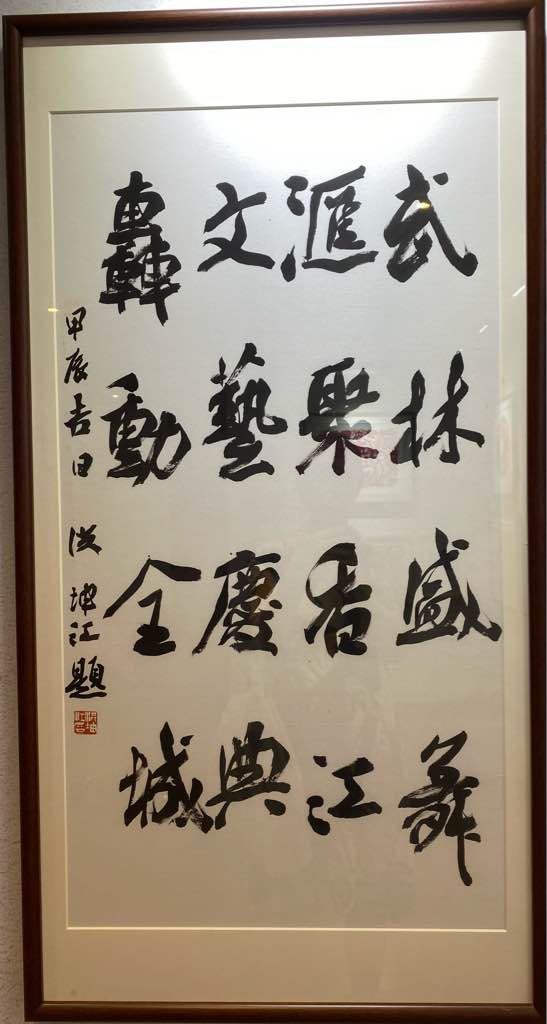 武林盛舞
滙聚香江
文藝慶典
轟動全城
甲辰吉日 洪坤江題